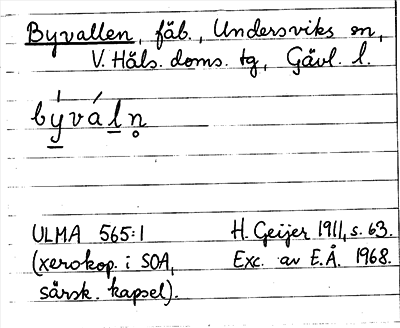 Byvallen, fäb., Undersviks sn,
V. Häls. doms. tg, Gävl. l.
býváln̥
ULMA 565:1 H. Geijer 1911, s. 63.
(xerokop. i SOA, Exc. av E.Å. 1968.
särsk. kapsel).